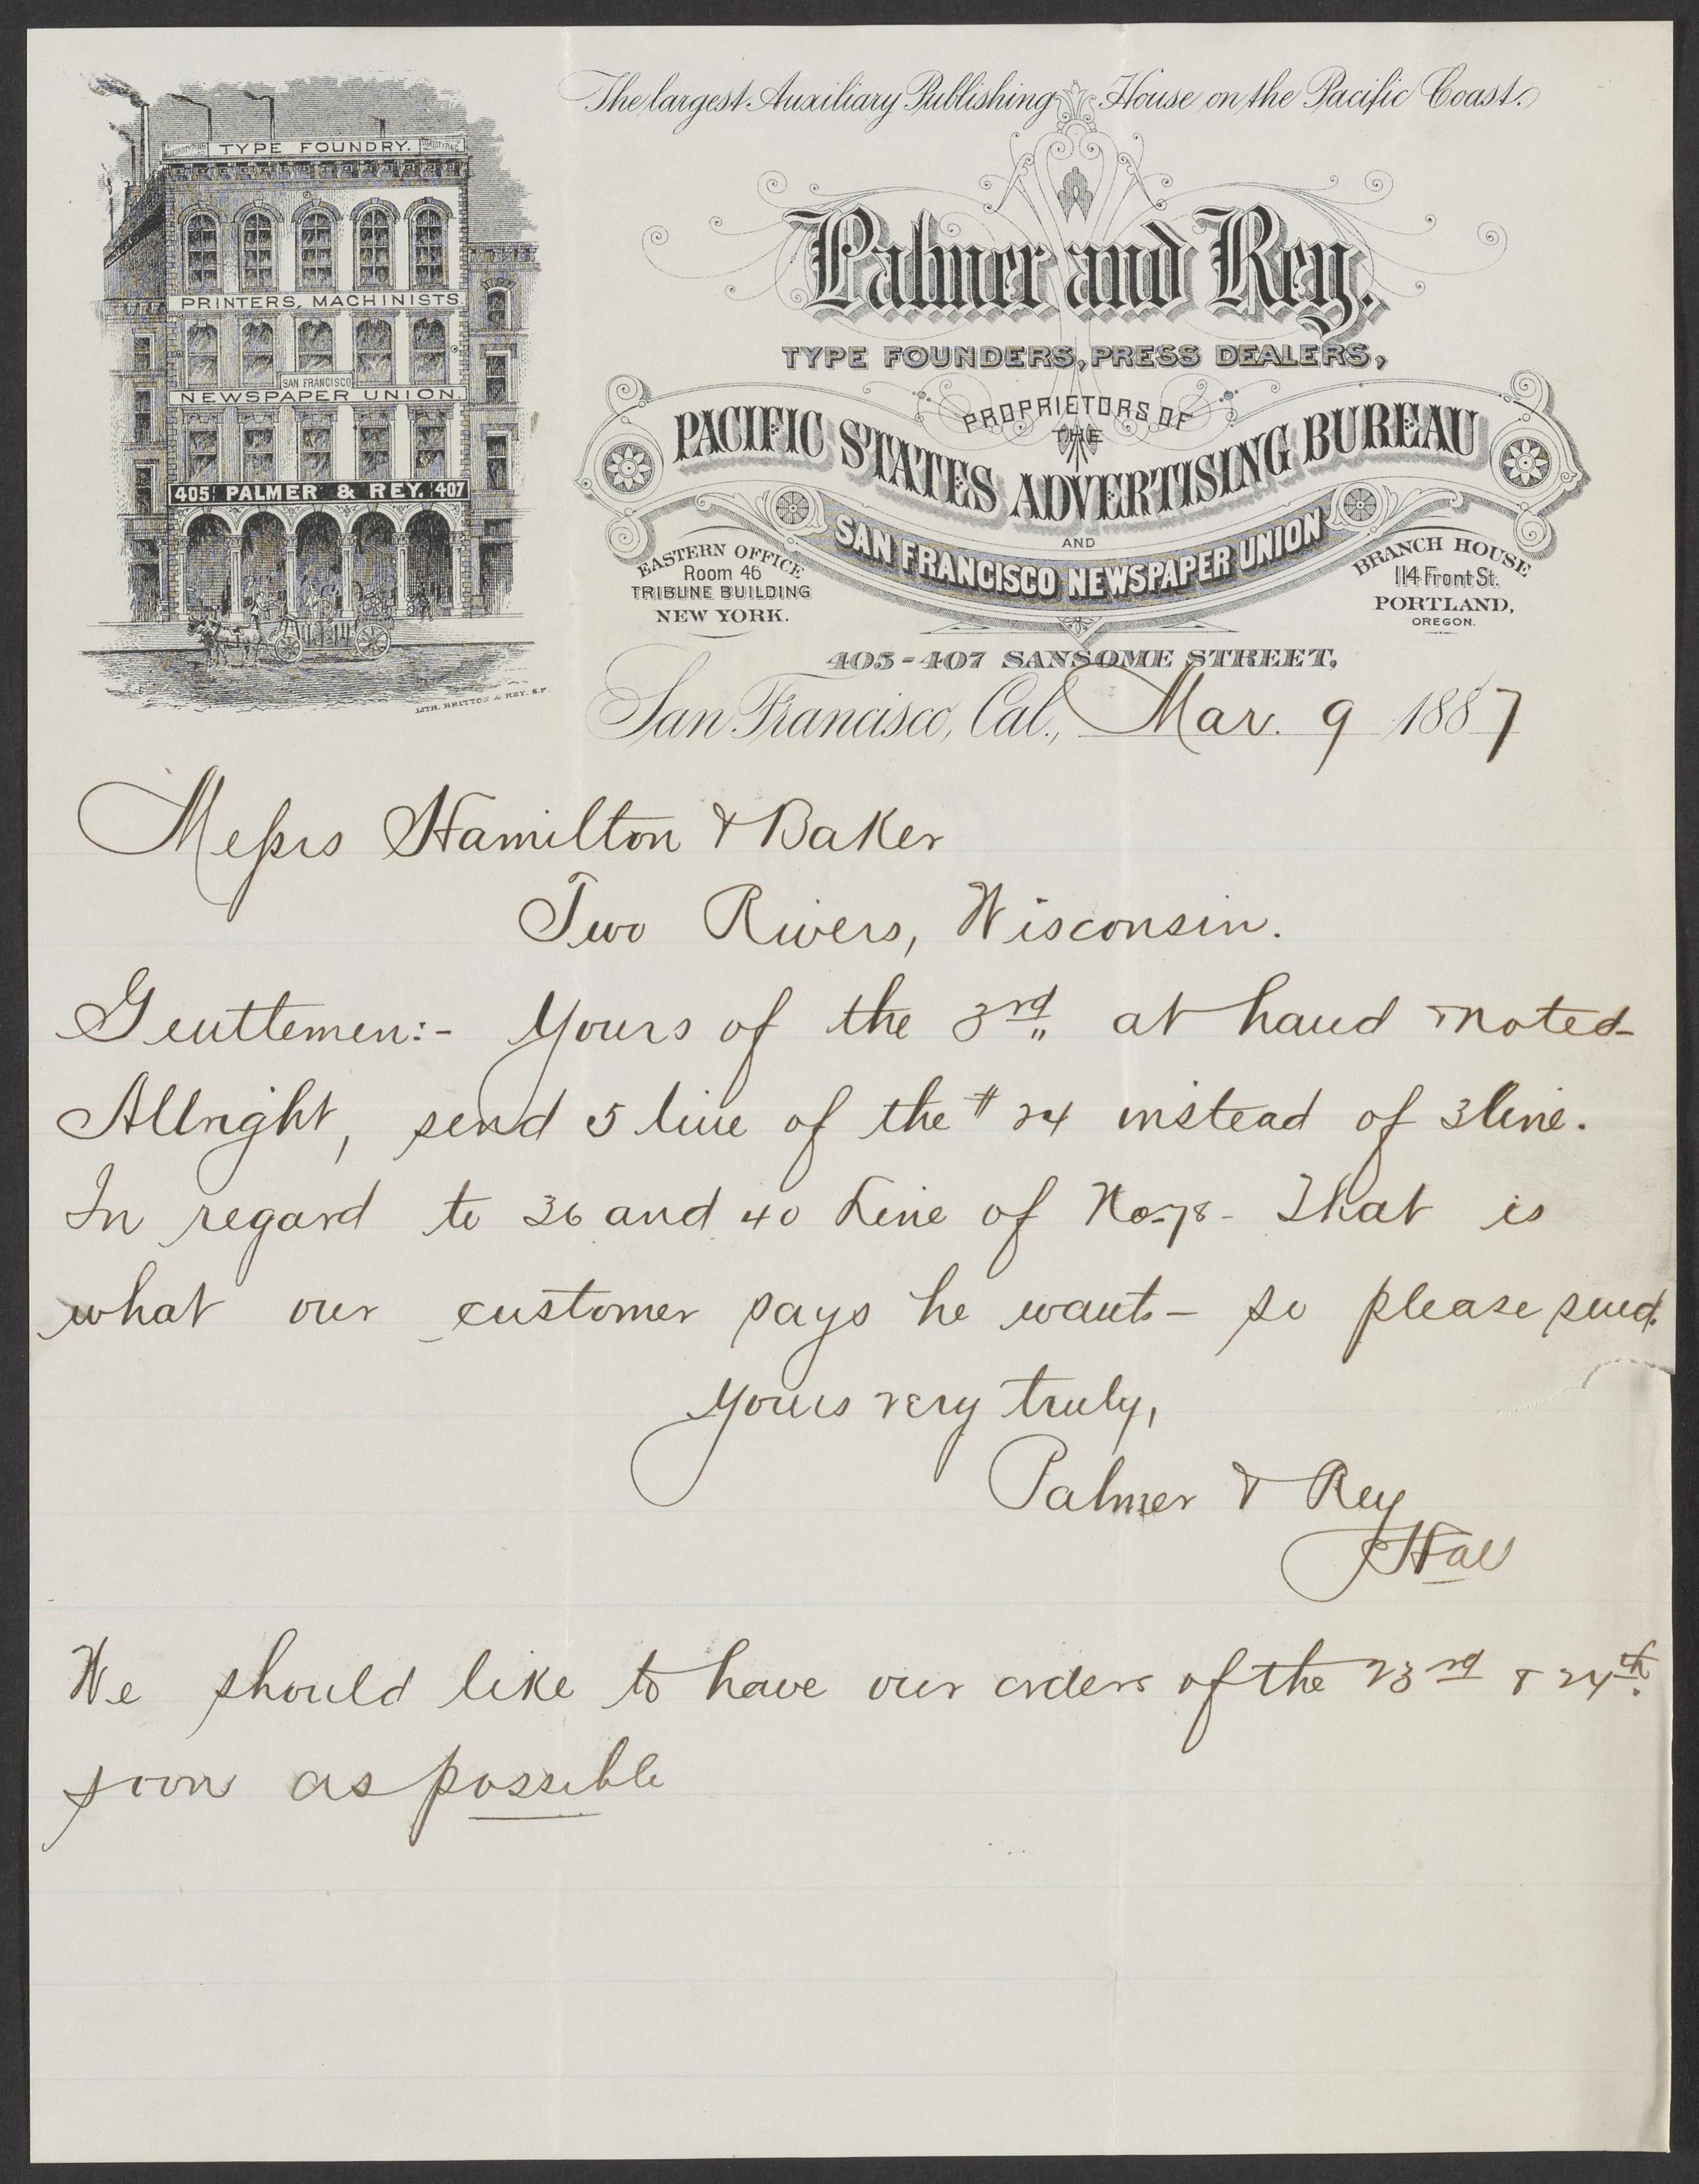 The largest Auxiliary Publishing House on the Pacific Coast.
TYPE FOUNDRY.
PRINTERS, MACHINISTS.
SAN FRANCISCO
NEWSPAPER UNION.
405 PALMER & REY. 407
LITH. BRITTON & REY. S.F.
Palmer and Rey.
TYPE FOUNDERS, PRESS DEALERS,
PROPRIETORS OF
THE
PACIFIC STATES ADVERTISING BUREAU
AND
SAN FRANCISCO NEWSPAPER UNION
EASTERN OFFICE
Room 46
TRIBUNE BUILDING
NEW YORK.
BRANCH HOUSE
114 Front St.
PORTLAND,
OREGON.
405-407 SANSOME STREET,
San Francisco, Cal., Mar. 9 1887
Messrs Hamilton & Baker
Two Rivers, Wisconsin.
Gentlemen:- Yours of the 3rd at hand & noted
Allright, send 5 line of the # 24 instead of 3 line.
In regard to 36 and 40 Line of No. 78- That is
what our customer says he wants- so please send.
Yours very truly,
Palmer & Rey
We should like to have our orders of the 23rd & 24th
soon as possible